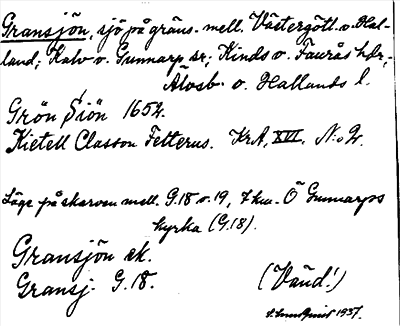 Gransjön, sjö på gräns. mell. Västergötl. o. Hal-
land; Kalv o. Gunnarp sr; Kinds o. Faurås hdr,
Älvsb. o. Hallands l.
Grön Siön 1652.
Kietell Classon Felterus. KrA, XVI, N:o 2.
Läge på skarven mell. G.18 o. 19, 7 km. Ö Gunnarps
kyrka (G.18).
Gransjön ek.
Gransj. G.18.
(Vänd!)
Lundquist 1937.